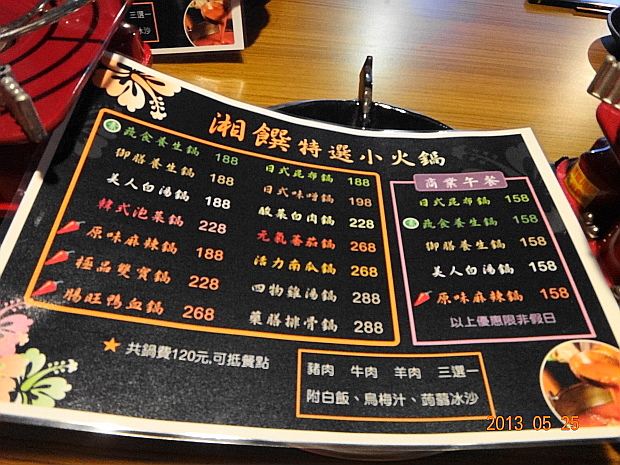 三選一
冰沙
湘饌特選小火鍋
蔬食養生鍋 188
御膳養生鍋 188
美人白湯鍋 188
韓式泡菜鍋 228
原味麻辣鍋 188
極品雙寶鍋 228
腸旺鴨血鍋 268
日式昆布鍋 188
日式味噌鍋 198
酸菜白肉鍋 228
元氣蕃茄鍋 268
活力南瓜鍋 268
四物雞湯鍋 288
藥膳排骨鍋 288
商業午餐
日式昆布鍋 158
蔬食養生鍋 158
御膳養生鍋 158
美人白湯鍋 158
原味麻辣鍋 158
以上優惠限非假日
共鍋費120元,可抵餐點
豬肉 牛肉 羊肉 三選一
附白飯、烏梅汁、蒟蒻冰沙
2013 05 25